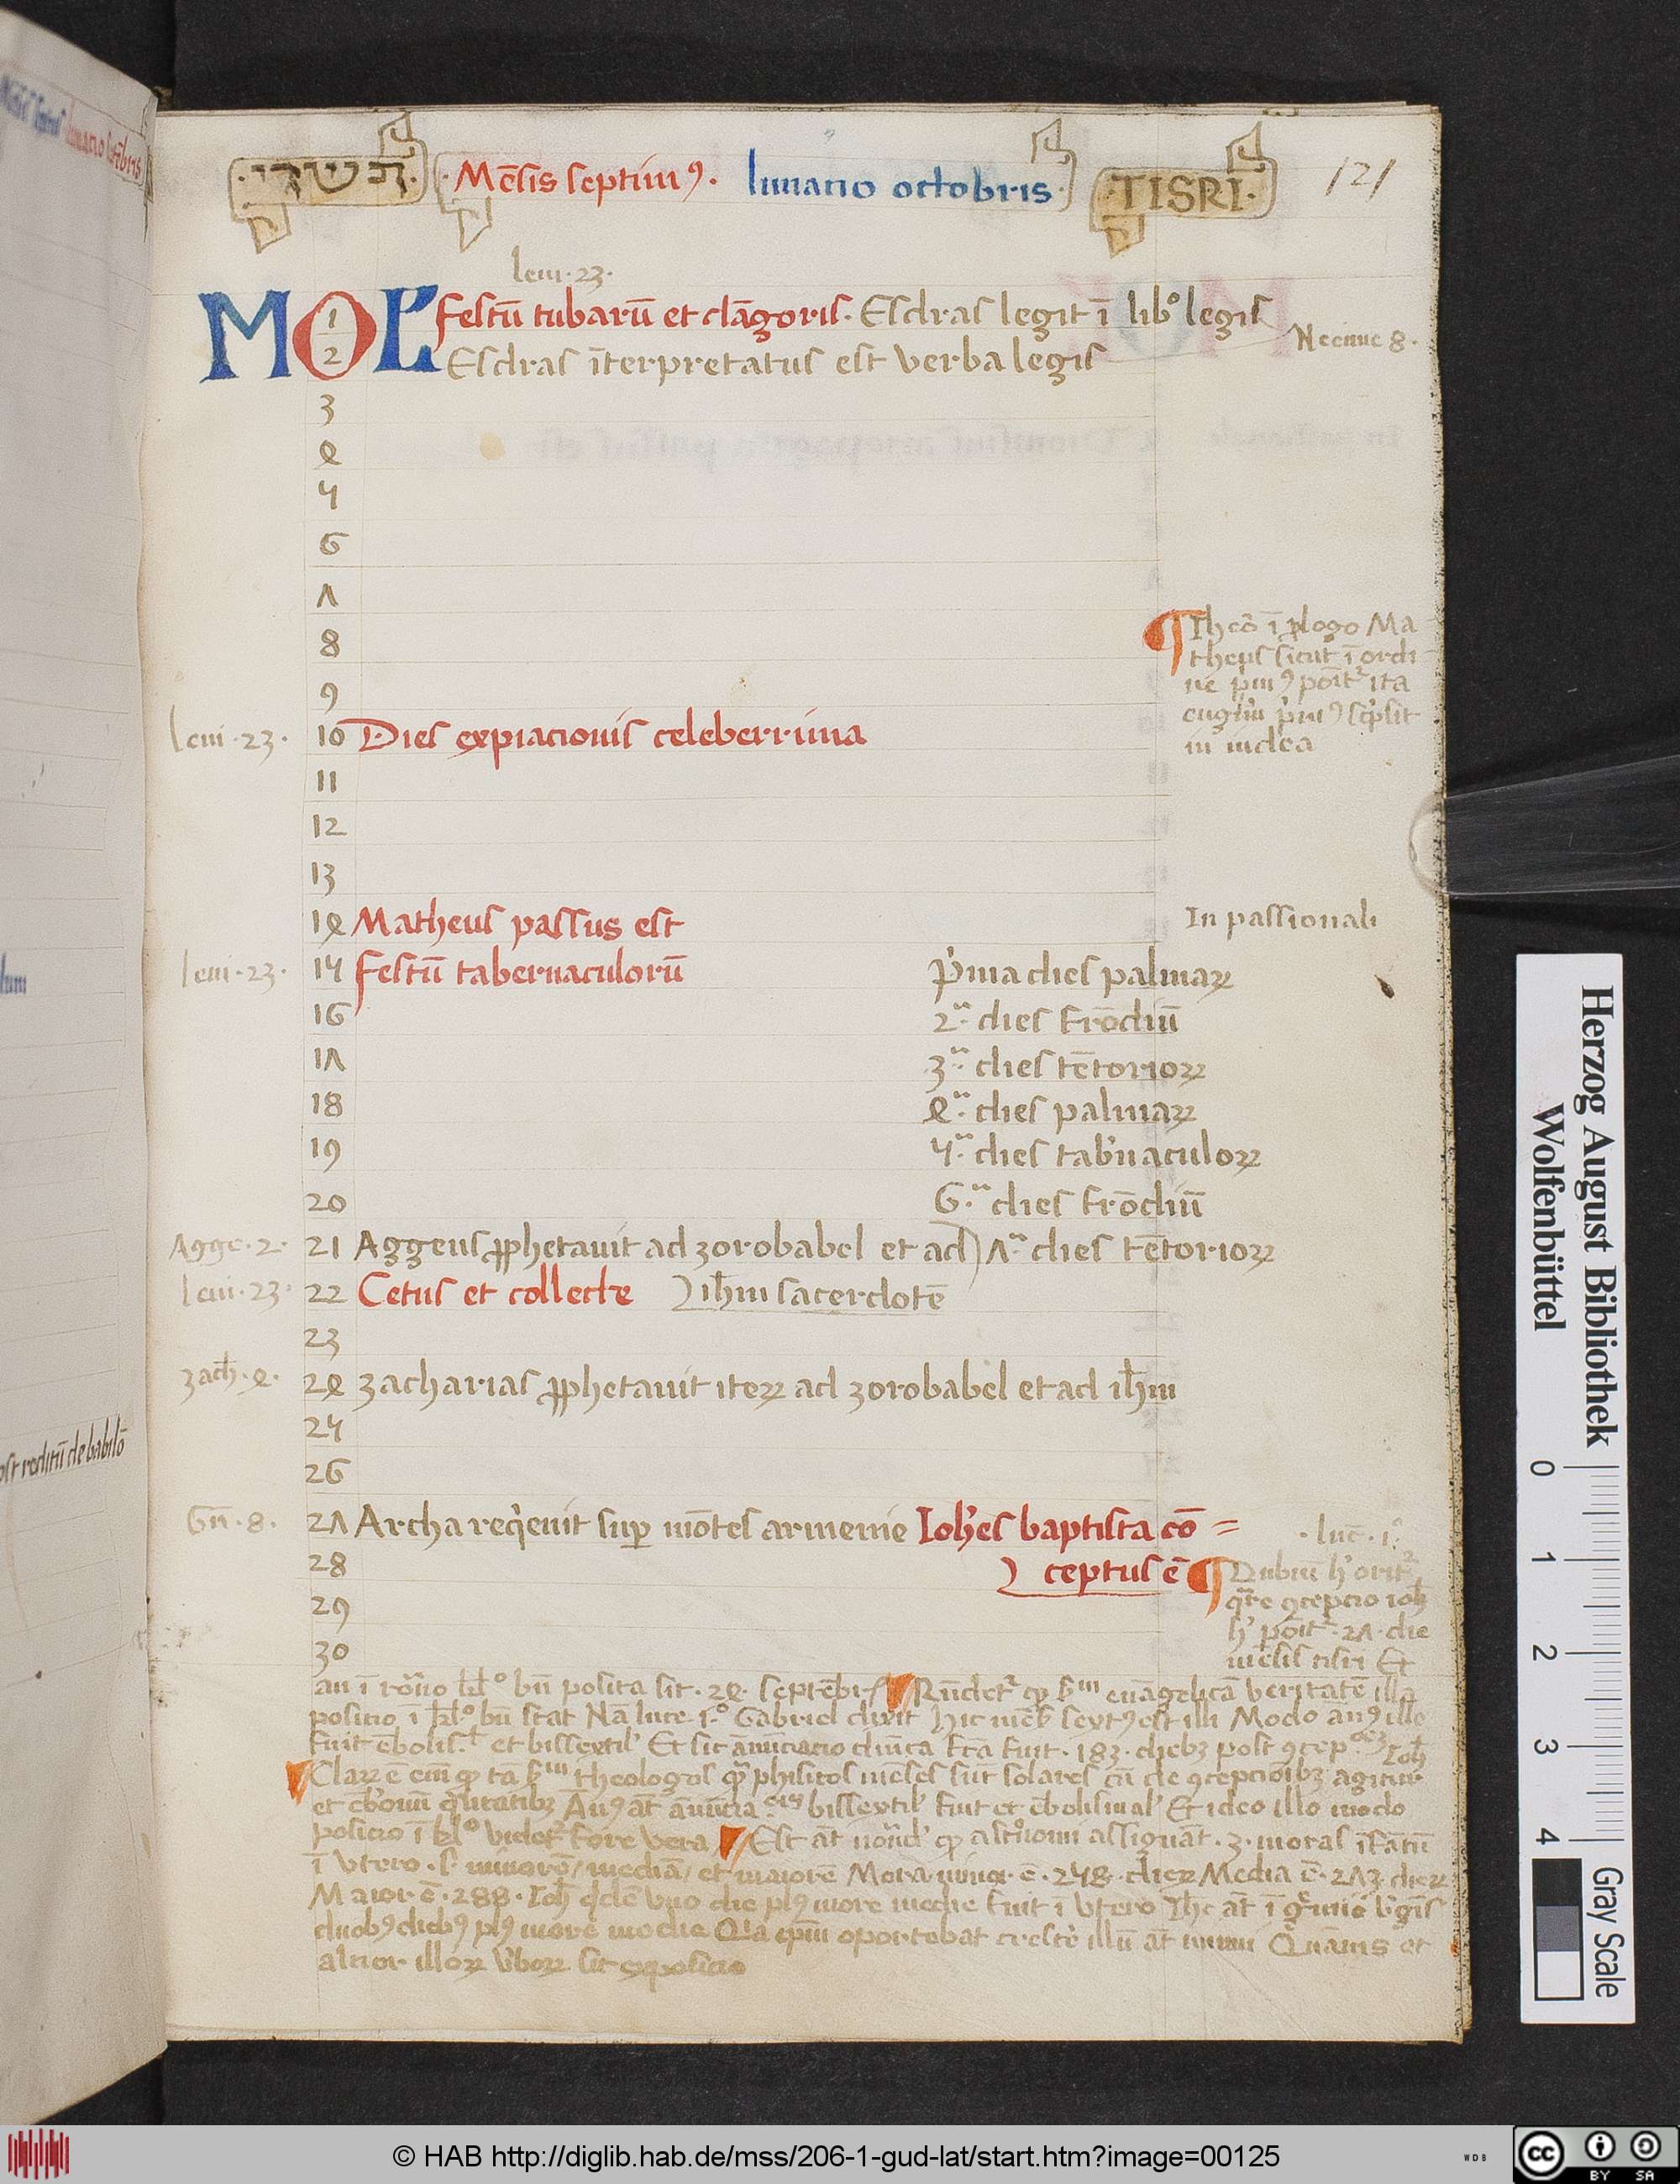 תשרי
Mēsis septimꝰ.
lunatio octobris.
TISRI.
121
leui. 23.
MOL
1 festū tubarū et clāgoris. Esdras legit ī libº legis
Neemie 8.
2 Esdras īterpretatus est verba legis
3
4
5
6
7
8
9
¶ Iheō ī plogo Ma
theus sicut ī ordi
ne pmꝰ poit᷑ ita
eugīm pmꝰ scpsit
in iudea
leui. 23. 10 Dies expiacionis celeberrima
11
12
13
14 Matheus passus est In passionali
leui. 23. 15 festū tabernaculorū pͥma dies palmaꝝ
16 2ª dies frōdiū
17 3ª dies tētorioꝝ
18 4ª dies palmaꝝ
19 5ª dies tab'naculoꝝ
20 6ª dies frōdiū
Agge. 2. 21 Aggeus ꝓphetauit ad zorobabel et ad 7ª dies tētorioꝝ
leui. 23. 22 Cetus et collecte ih̄m sacerdotē
23
zach. 4. 24 zacharias ꝓphetauit iteꝝ ad zorobabel et ad ih̄m
25
26
Gn̄. 8. 27 Archa reqͥeuit suꝑ mōtes armenie Ioh'es baptista cō=
luc. 1º
28 ceptus ē
29
30
¶ Dubiū h' orit᷑
qͣre ꝯcepcio ioh̄
h' poit᷑ 27 die
mēsis tisri Et
an ī roāo kl̄º bn̄ posita sit. 24. septēbr. Rn̄det᷑ ꝙ sm euāgelicā veritatē illa
posicio ī kl̄º bn̄ stat Nā luce 1º Gabriel dixit hic mēs' sextꝰ est illi Modo anꝰ ille
fuit ebolis. et bissextil' Et sic anūciacio diuīa fcā fuit. 183. diebꝫ post ꝯcep Ioh̄
Claꝝ ē eīm ꝙ ta sm theologos qͣ phisicos mēses sūt solares cū de ꝯcepcioibꝫ agitur
Et ideo illo modo
posicio ī kl̄º videt᷑ fore vera Est āt notād' ꝙ astͦnomi assignāt. 3. moras īfātū
ī vtero. s. minorē / mediā / et maiorē Mora minor ē. 258. dieꝝ Media ē. 273. dieꝝ
Maior ē. 288. Ioh̄ qͥdē vno die plꝰ more medie fuit ī vtero Ihc āt ī gͥmio vgīs
duobꝰ diebꝰ plꝰ more medie Qͥa ipm̄ oportebat cresce' illū āt minui Qͣuis et
altior illoꝝ v'boꝝ sit exposicio
post reditū de babilō
Herzog August Bibliothek
Wolfenbüttel
0 1 2 3 4
Gray Scale
© HAB http://diglib.hab.de/mss/206-1-gud-lat/start.htm?image=00125
WDB
cc BY SA